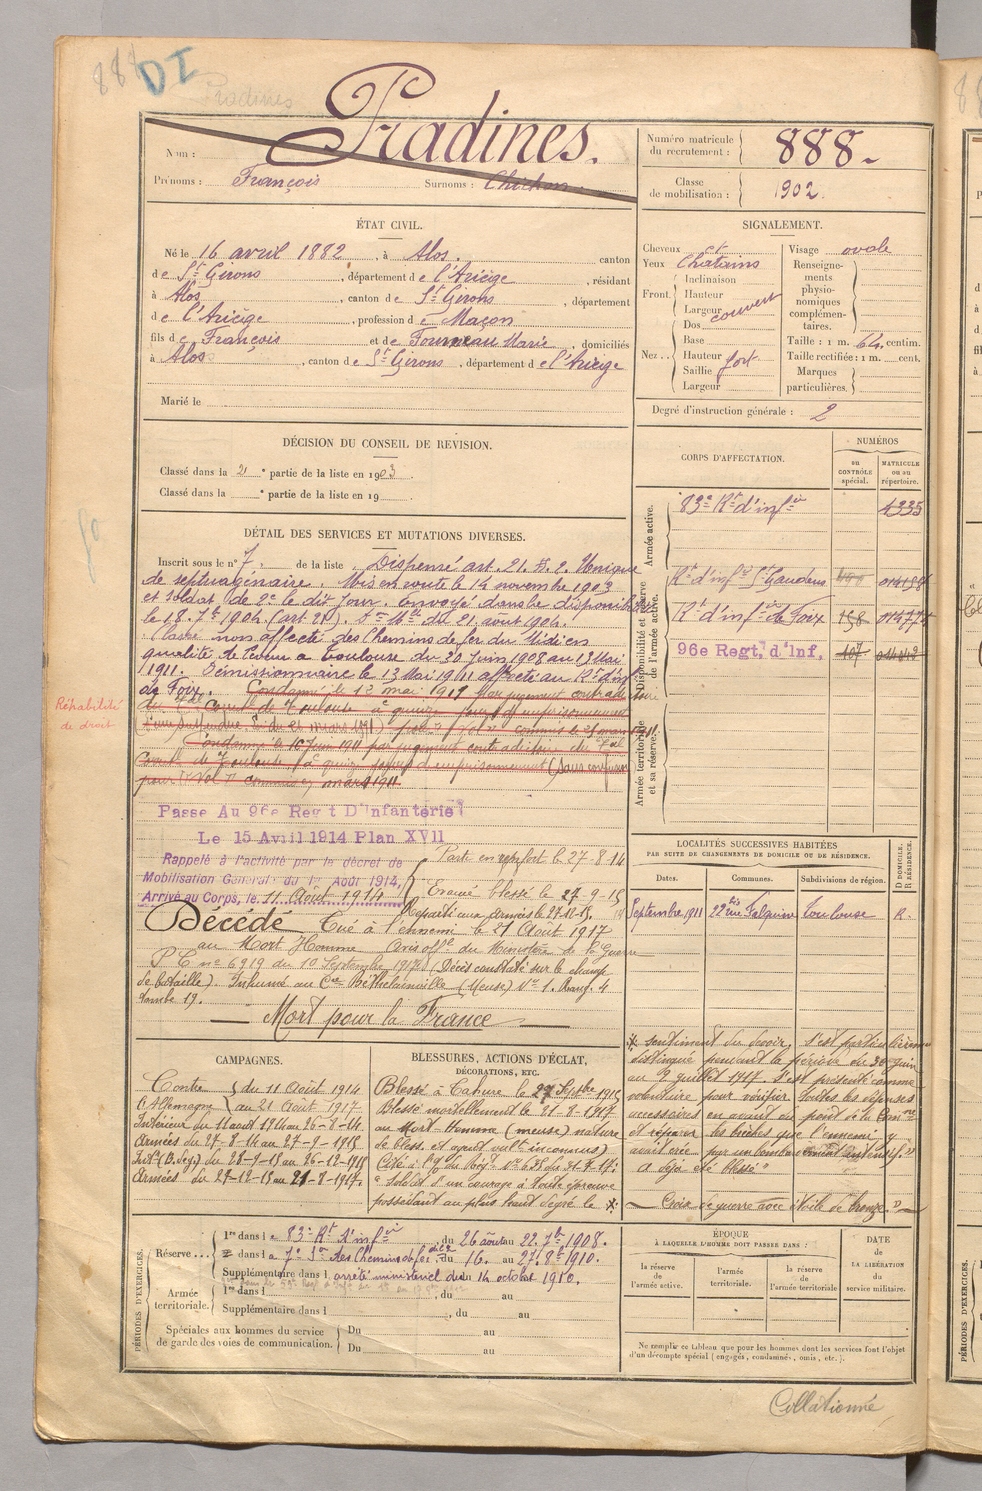 888
DI
Pradines
Nom : Pradines.
Prénoms : François Surnoms : Chichon
Numéro matricule du recrutement : 888.
Classe de mobilisation : 1902
ÉTAT CIVIL.
Né le 16 avril 1882, à Alos. canton
de St Girons, département de l'Ariège, résidant
à Alos, canton de St Girons, département
de l'Ariège, profession de Maçon
fils de François et de Fourneau Marie, domiciliés
à Alos, canton de St Girons, département de l'Ariège
Marié le
SIGNALEMENT.
Cheveux et
Yeux Chatains
Front.
Inclinaison
Hauteur
Largeur
couvert
Dos
Nez..
Base
Hauteur
fort
Saillie
Largeur
Visage ovale
Renseignements physionomiques complémentaires.
Taille : 1 m. 64 centim.
Taille rectifiée : 1 m. cent.
Marques particulières.
Degré d'instruction générale : 2
DÉCISION DU CONSEIL DE REVISION.
Classé dans la 2e partie de la liste en 1903.
Classé dans la e partie de la liste en 19
CORPS D'AFFECTATION.
NUMÉROS
au CONTRÔLE spécial.
MATRICULE ou au répertoire.
Armée active.
83e Rt d'infie 4335
Disponibilité et réserve de l'armée active.
Rt d'infie St Gaudens
Rt d'infie de Foix 158
96e Regt, d'Inf. 107
Armée territoriale et sa réserve.
DÉTAIL DES SERVICES ET MUTATIONS DIVERSES.
Inscrit sous le n° 7 de la liste Dispensé art. 21. § 2. Unique
de septuagénaire. Mis en route le 14 novembre 1903
et soldat de 2e le dit jour. envoyé dans la disponibilité
le 18. 7bre 1904 (art 21). du 21 aout 1904.
Classé non affecté des Chemins de fer du Midi en
qualité de à Toulouse du 30 Juin 1908 au 13 Mai
1911. Démissionnaire le 13 Mai 1911 affecté au Rt d'inf
de Foix. Condamné le 12 mai 1911 par jugement contradictoire
du Tal Correl de Toulouse à quinze jours d'emprisonnement
pour vol commis le mars 1911.
Condamné le 10 Juin 1911 par jugement contradictoire du Tal
Correl de Toulouse à quinze jours d'emprisonnement (sans confusion)
pour "Vol" commis en mars 1911
Réhabilité
de droit
Passe Au 96e Regt D'Infanterie
Le 15 Avril 1914 Plan XVII
Rappelé à l'activité par le décret de
Mobilisation Générale du 1er Août 1914,
Arrivé au Corps, le 11 Août 1914
Parti en renfort le 27-8-14
Evacué blessé le 27-9-15
Reparti aux armées le 27.12.15.
Décédé Tué à l'ennemi le 21 Août 1917
au Mort Homme Avis offel du Ministère de la Guerre
P C n° 6919 du 10 Septembre 1917. (Décès constaté sur le champ
de bataille). Inhumé au Cre Béthelainville (Meuse) N° 1. Rang. 4
tombe 19.
Mort pour la France
LOCALITÉS SUCCESSIVES HABITÉES
PAR SUITE DE CHANGEMENTS DE DOMICILE OU DE RÉSIDENCE.
Dates. Communes. Subdivisions de région. D DOMICILE. R RÉSIDENCE.
Septembre 1911 22 bis rue Toulouse R.
CAMPAGNES.
Contre l'Allemagne du 11 Août 1914
au 21 Août 1917
Intérieur du 11 aout 1914 au 26-8-14
Armées du 27-8-14 au 27-9-1915
Intr (B. de g.) du 28-9-15 au 26-12-1915
Armées du 27-12-15 au 21-8-1917.
BLESSURES, ACTIONS D'ÉCLAT, DÉCORATIONS, ETC.
Blessé à Tahure le 27 Septbre 1915
Blessé mortellement le 21-8-1917
au Mort-Homme (meuse) nature
de bless. et agent vult inconnus)
Cité à l'o du Régt n° 635 du 31.7.17:
"Soldat d'un courage à toute épreuve
possédant au plus haut degré le ※
※ sentiment du devoir, s'est particulièrement
distingué pendant la période du 30 juin
au 9 juillet 1917. S'est présenté comme
volontaire pour vérifier toutes les défenses
accessoires en avant du front de la Comnie
et réparer les brèches que l'ennemi y
avait créé par un bombardement intensif"
"A déjà été blessé"
Croix de guerre avec étoile de bronze."
PÉRIODES D'EXERCICES.
Réserve...
1re dans le 83e Rt d'infie du 26 août au 22. 7bre 1908.
2e dans la 7e Son des Chemins de fer du 16. au 27. 8bre 1910.
Supplémentaire dans l arrêté ministériel du 14 octobre 1910.
Armée territoriale.
1re dans l , du au
Supplémentaire dans l , du au
Spéciales aux hommes du service de garde des voies de communication.
Du au
Du au
ÉPOQUE
À LAQUELLE L'HOMME DOIT PASSER DANS :
la réserve de l'armée active.
l'armée territoriale.
la réserve de l'armée territoriale
DATE de LA LIBÉRATION du service militaire.
Ne remplir ce tableau que pour les hommes dont les services font l'objet
d'un décompte spécial (engagés, condamnés, omis, etc.).
Collationné
PÉRIODES D'EXERCICES.